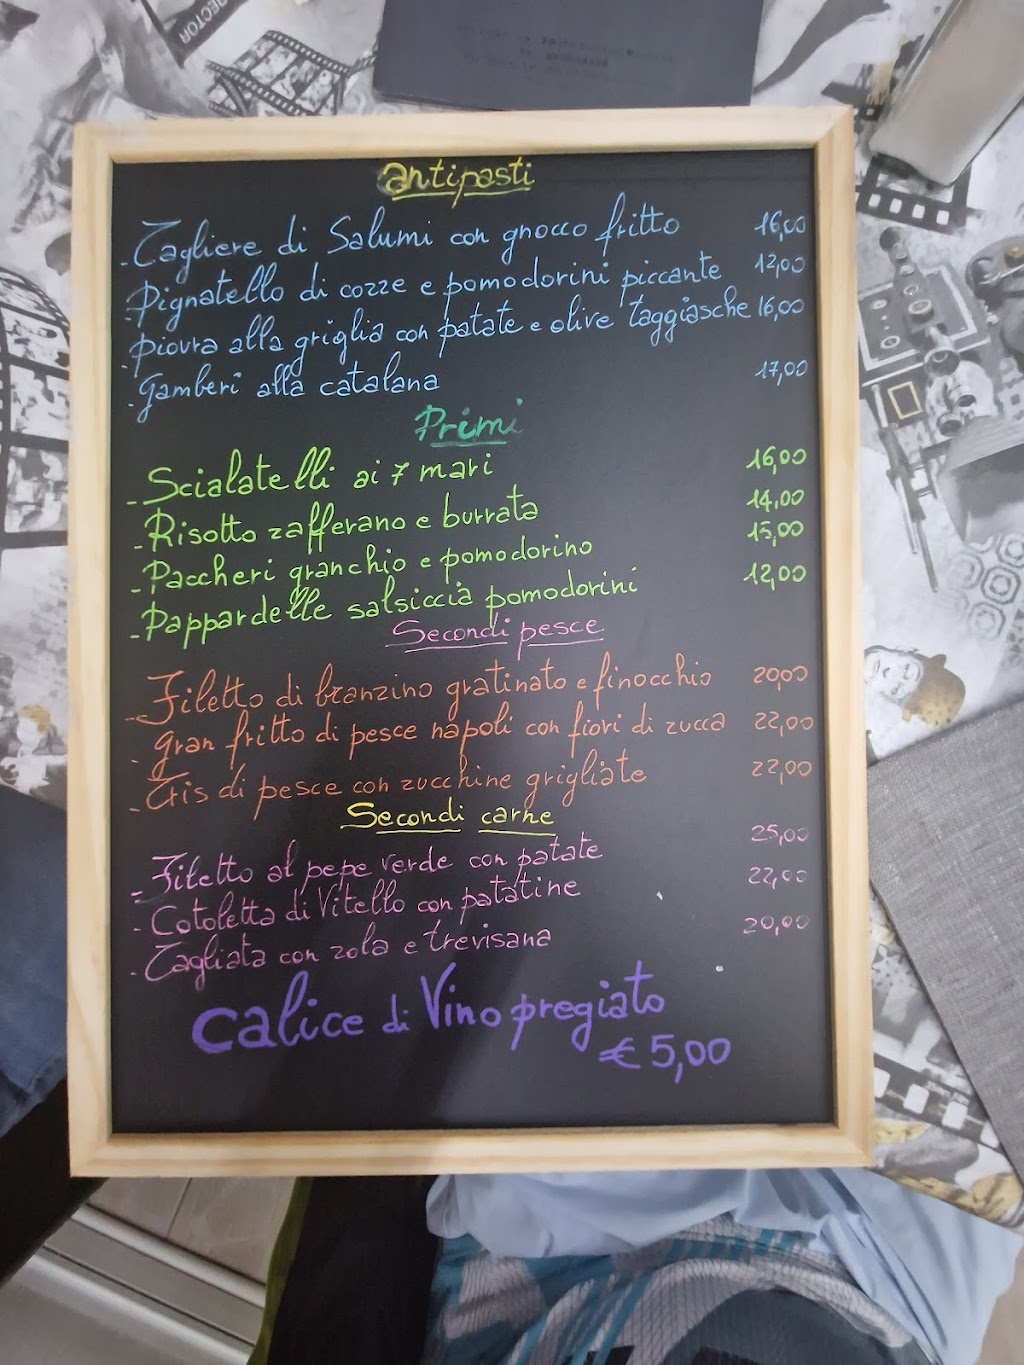 RECTOR
antipasti
- Tagliere di Salumi con gnocco fritto 16,00
- Pignatello di cozze e pomodorini piccante 12,00
- Piovra alla griglia con patate e olive taggiasche 16,00
- Gamberi alla catalana 17,00
Primi
- Scialatelli ai 7 mari 16,00
- Risotto zafferano e burrata 14,00
- Paccheri granchio e pomodorino 15,00
- Pappardelle salsiccia pomodorini 12,00
Secondi pesce
- Filetto di branzino gratinato e finocchio 20,00
- Gran fritto di pesce napoli con fiori di zucca 22,00
- Tris di pesce con zucchine grigliate 22,00
Secondi carne
- Filetto al pepe verde con patate 25,00
- Cotoletta di Vitello con patatine 22,00
- Tagliata con zola e trevisana 20,00
Calice di Vino pregiato
€ 5,00